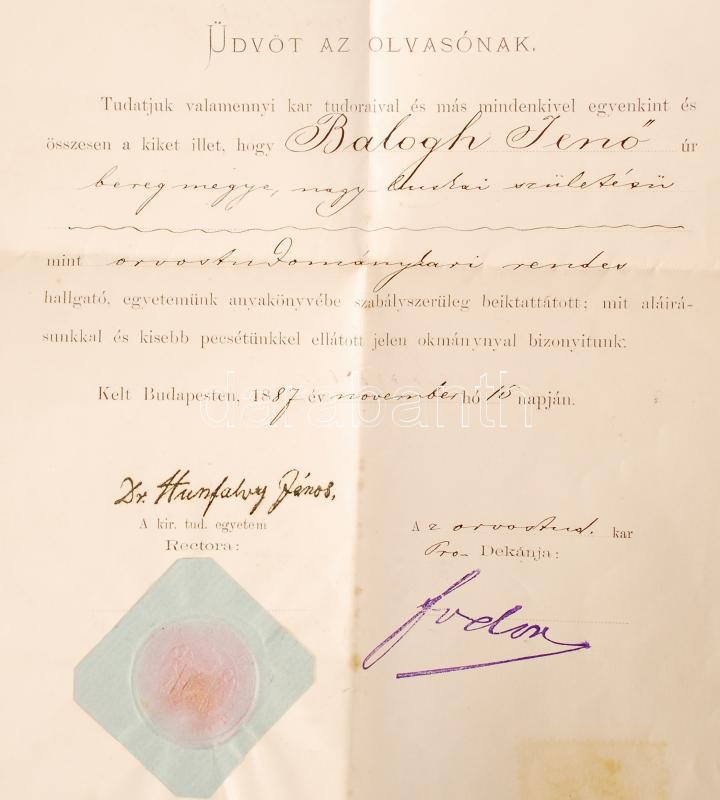 ÜDVÖT AZ OLVASÓNAK.
Tudatjuk valamennyi kar tudoraival és más mindenkivel egyenkint és
összesen a kiket illet, hogy Balogh Jenő úr
bereg megye, nagy-luskai születésü
mint orvostudománykari rendes
hallgató, egyetemünk anyakönyvébe szabályszerüleg beiktattátott; mit aláirá-
sunkkal és kisebb pecsétünkkel ellátott jelen okmánynyal bizonyitunk.
Kelt Budapesten, 1887 év november hó 15 napján.
darabanth
Dr. Hunfalvy János.
A kir. tud. egyetem
Rectora:
A z orvostud. kar
Pro- Dekánja:
Fodor